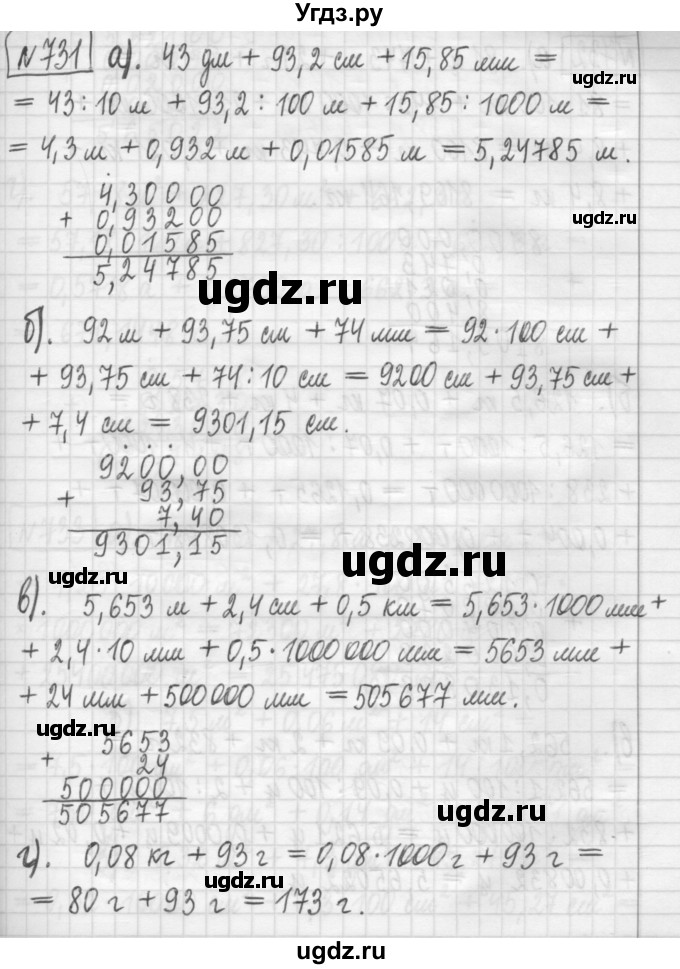 Угдз.ру
№731 а). 43 дм + 93,2 см + 15,85 мм =
ugdz.ru
= 43:10 м + 93,2:100 м + 15,85:1000 м =
= 4,3 м + 0,932 м + 0,01585 м = 5,24785 м.
4,30000
+ 0,93200
ugdz.ru
0,01585
5,24785
ugdz.ru
б). 92 м + 93,75 см + 74 мм = 92·100 см +
+ 93,75 см + 74:10 см = 9200 см + 93,75 см +
+ 7,4 см = 9301,15 см.
9200,00
+ 93,75
7,40
9301,15
ugdz.ru
ugdz.ru
в). 5,653 м + 2,4 см + 0,5 км = 5,653·1000 мм +
+ 2,4·10 мм + 0,5·1000000 мм = 5653 мм +
+ 24 мм + 500000 мм = 505677 мм.
ugdz.ru
5653
+ 24
500000
505677
ugdz.ru
г). 0,08 кг + 93 г = 0,08·1000 г + 93 г =
ugdz.ru
= 80 г + 93 г = 173 г.
ugdz.ru